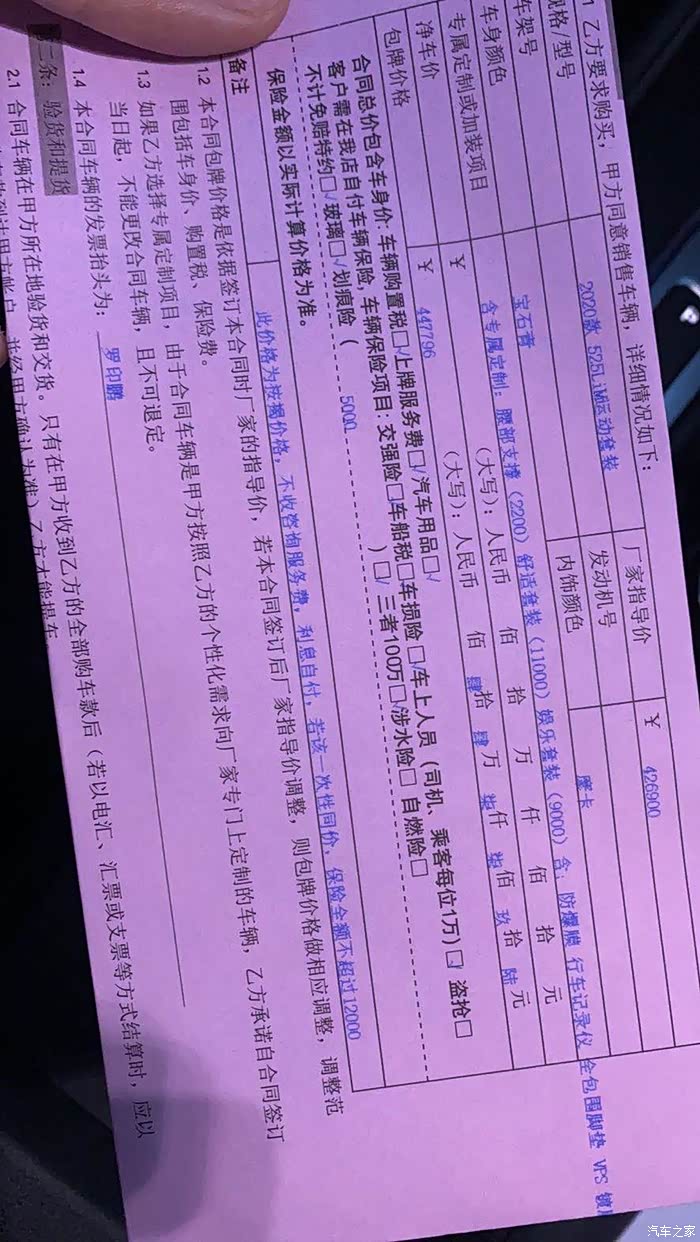 1 乙方要求购买，甲方同意销售车辆，详细情况如下：
规格/型号 2020款 525Li M运动套装 厂家指导价 ￥ 426900
车架号 发动机号
车身颜色 宝石青 内饰颜色 摩卡
专属定制或加装项目 含专属定制：腰部支撑（2200）舒适套装（11000）娱乐套装（9000）含：防爆膜 行车记录仪 全包围脚垫 VPS 镀
净车价 ￥ （大写）：人民币 佰 拾 万 仟 佰 拾 元
包牌价格 ￥ 447796 （大写）：人民币 佰 肆拾 肆万 柒仟 柒佰 玖拾 陆元
合同总价包含车身价：车辆购置税□√上牌服务费□√汽车用品□√
客户需在我店自付车辆保险，车辆保险项目：交强险□车船税□车损险□√车上人员（司机、乘客每位1万）□√ 盗抢□
不计免赔特约□√玻璃□√划痕险（ 5000 ）□√三者100万□√涉水险□ 自燃险□
保险金额以实际计算价格为准。
备注 此价格为按揭价格，不收咨询服务费，利息自付，若该一次性同价，保险全额不超过12000
1.2 本合同包牌价格是依据签订本合同时厂家的指导价，若本合同签订后厂家指导价调整，则包牌价格做相应调整，调整范
围包括车身价、购置税、保险费。
1.3 如果乙方选择专属定制项目，由于合同车辆是甲方按照乙方的个性化需求向厂家专门上定制的车辆，乙方承诺自合同签订
当日起，不能更改合同车辆，且不可退定。
1.4 本合同车辆的发票抬头为： 罗印鹏
二条：验货和提货
2.1 合同车辆在甲方所在地验货和交货。只有在甲方收到乙方的全部购车款后（若以电汇、汇票或支票等方式结算时，应以
并经甲方确认为准）乙方才能提车
汽车之家